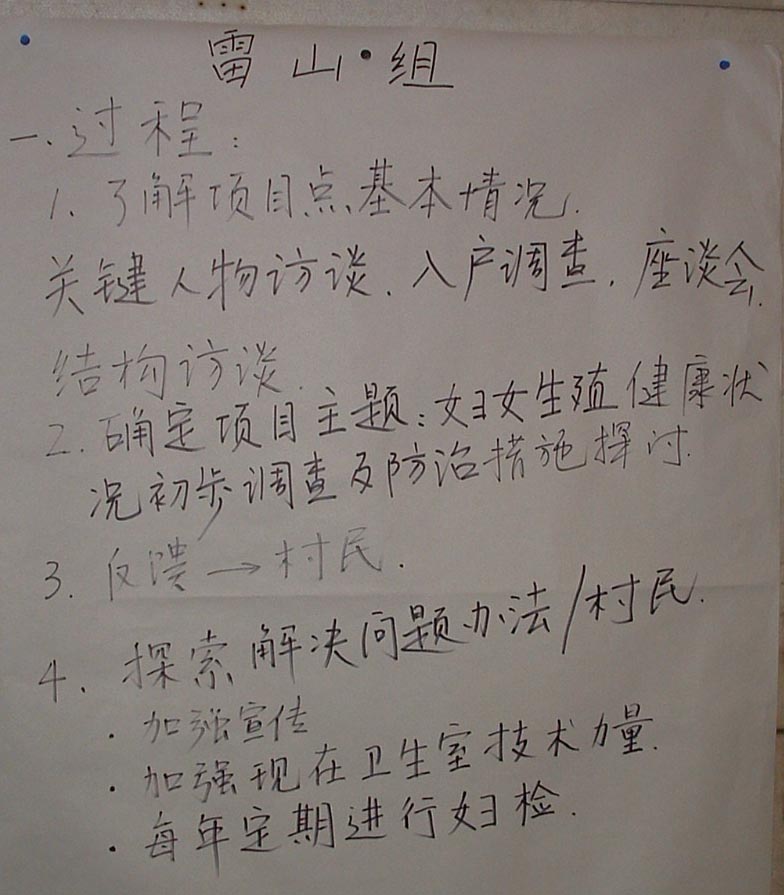 雷山·组
一.过程：
1. 了解项目点基本情况.
关键人物访谈.入户调查.座谈会.
结构访谈.
2. 确定项目主题：妇女生殖健康状
况初步调查及防治措施探讨.
3. 反馈→村民.
4. 探索解决问题办法/村民.
· 加强宣传
· 加强现在卫生室技术力量.
· 每年定期进行妇检.